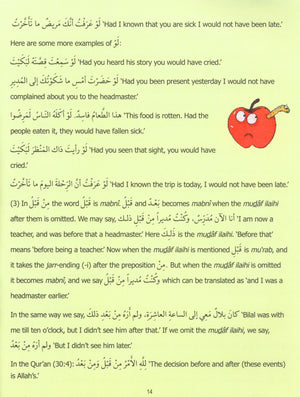 لَوْ عَرَفْتُ أَنَّكَ مَرِيضٌ مَا تَأَخَّرْتُ 'Had I known that you are sick I would not have been late.'
Here are some more examples of لَوْ:
لَوْ سَمِعْتَ قِصَّتَهُ لَبَكَيْتَ 'Had you heard his story you would have cried.'
لَوْ حَضَرْتَ أَمْسِ مَا شَكَوْتُكَ إِلَى الْمُدِيرِ 'Had you been present yesterday I would not have
complained about you to the headmaster.'
هَذَا الطَّعَامُ فَاسِدٌ. لَوْ أَكَلَهُ النَّاسُ لَمَرِضُوا 'This food is rotten. Had the
people eaten it, they would have fallen sick.'
لَوْ رَأَيْتَ ذَاكَ الْمَنْظَرَ لَبَكَيْتَ 'Had you seen that sight, you would have
cried.'
لَوْ عَرَفْتُ أَنَّ الرِّحْلَةَ الْيَوْمَ مَا تَأَخَّرْتُ 'Had I known the trip is today, I would not have been late.'
(3) In مِنْ قَبْلُ the word قَبْلُ is mabnî. قَبْلُ and بَعْدُ becomes mabnî when the mudâf ilaihi
after them is omitted. We may say, أَنَا الآنَ مُدَرِّسٌ، وَكُنْتُ مُدِيراً مِنْ قَبْلِ ذَلِكَ 'I am now a
teacher, and was before that a headmaster.' Here ذَلِكَ is the mudâf ilaihi. 'Before that'
means 'before being a teacher.' Now when the mudâf ilaihi is mentioned قَبْلِ is mu'rab, and
it takes the jarr-ending (-i) after the preposition مِنْ. But when the mudâf ilaihi is omitted
it becomes mabnî, and we say وَكُنْتُ مُدِيراً مِنْ قَبْلُ which can be translated as 'and I was
headmaster earlier.'
In the same way we say, كَانَ بِلَالٌ مَعِي إِلَى السَّاعَةِ الْعَاشِرَةِ، وَلَمْ أَرَهُ مِنْ بَعْدِ ذَلِكَ 'Bilal was with
me till ten o'clock, but I didn't see him after that.' If we omit the mudâf ilaihi, we say,
وَلَمْ أَرَهُ مِنْ بَعْدُ 'But I didn't see him later.'
In the Qur'an (30:4): لِلَّهِ الأَمْرُ مِنْ قَبْلُ وَمِنْ بَعْدُ 'The decision before and after (these events)
is Allah's.'
14